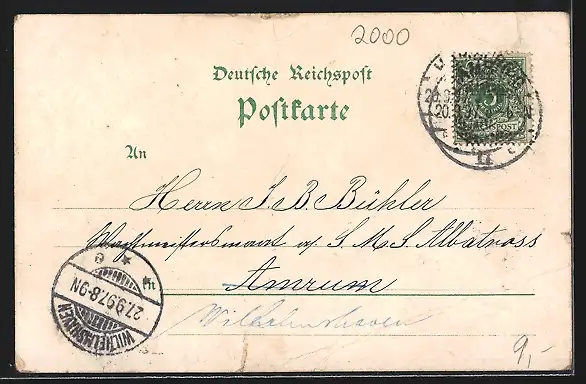 2000
Deutsche Reichspost
Postkarte
REICHSPOST
An
Herrn J. B. Bühler
Waffenmeistersmaat a/ S. M. S. Albatross
in Amrum
Wilhelmshaven
WILHELMSHAVEN
27.9.97.8-9N
9,-